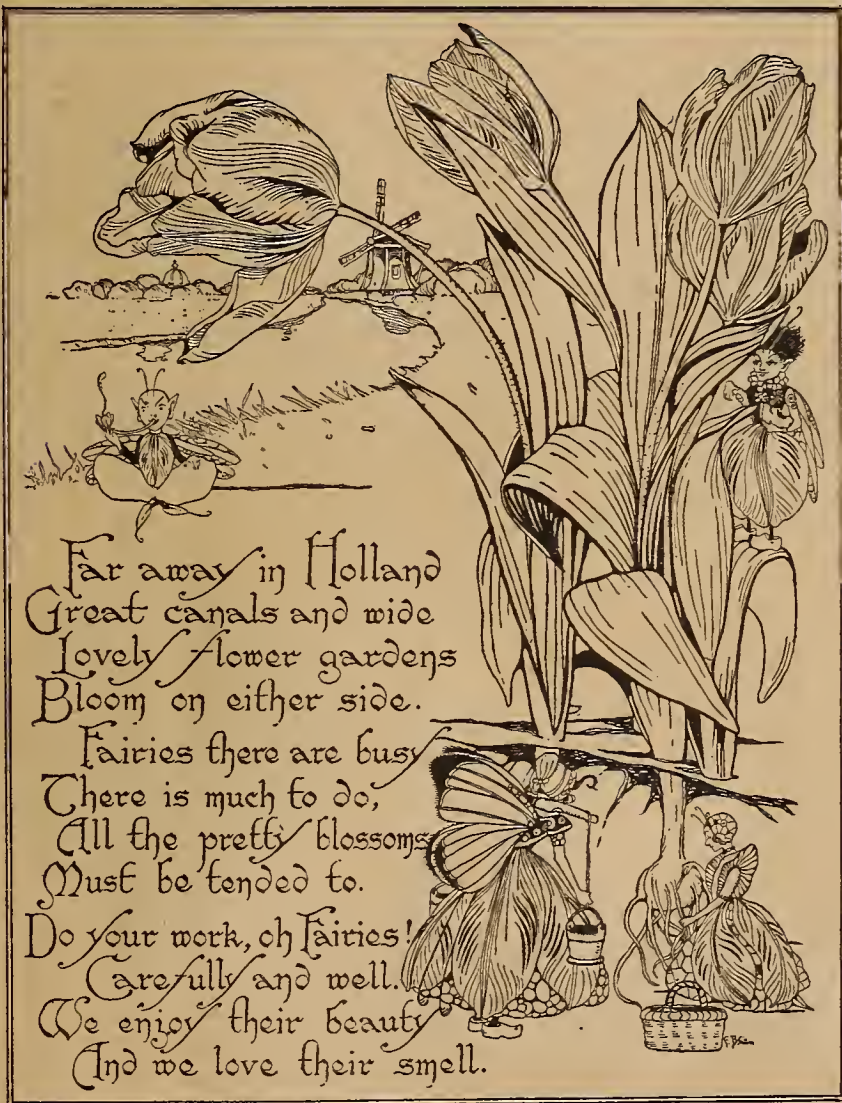 Far away in Holland
Great canals and wide
Lovely flower gardens
Bloom on either side.
Fairies there are busy
There is much to do,
All the pretty blossoms
Must be tended to.
Do your work, oh Fairies!
Carefully and well.
We enjoy their beauty
And we love their smell.